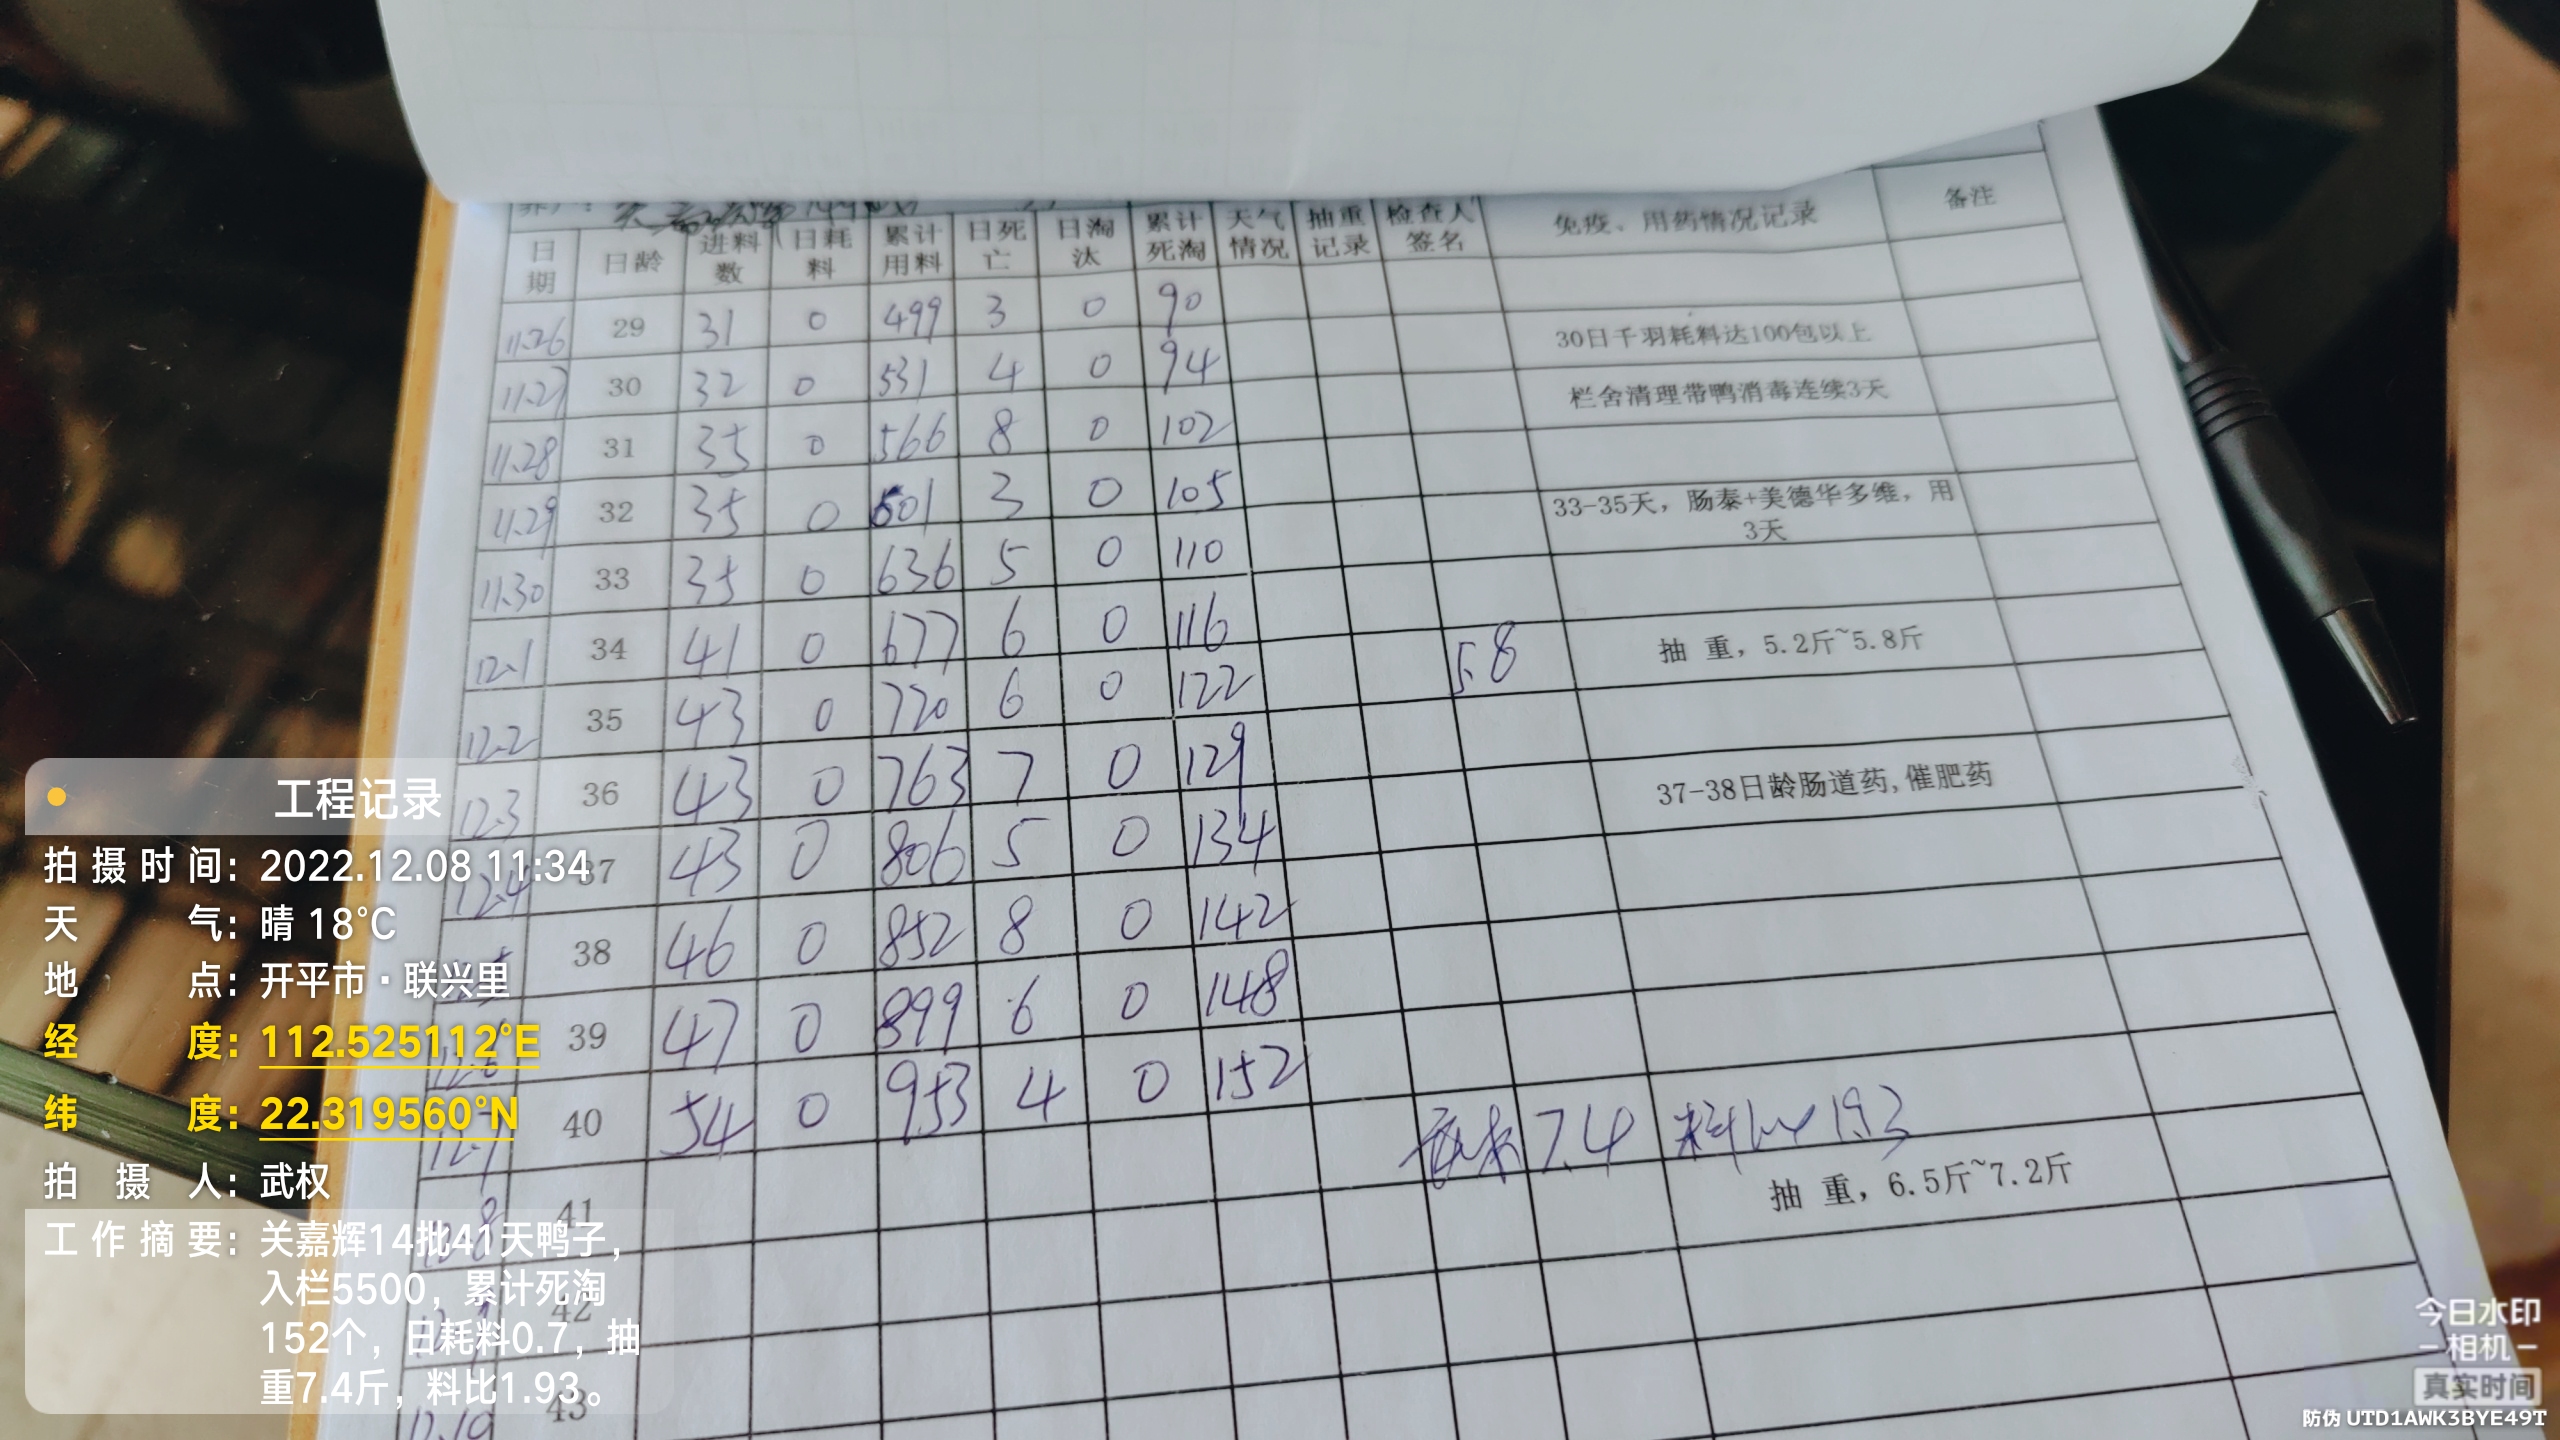 日期 日龄 进料数 日耗料 累计用料 日死亡 日淘汰 累计死淘 天气情况 抽重记录 检查人签名 免疫、用药情况记录 备注
11.26 29 31 0 499 3 0 90
11.27 30 32 0 531 4 0 94 30日千羽耗料达100包以上
11.28 31 35 0 566 8 0 102 栏舍清理带鸭消毒连续3天
11.29 32 35 0 601 3 0 105
11.30 33 35 0 636 5 0 110 33-35天，肠泰+美德华多维，用3天
12.1 34 41 0 677 6 0 116
12.2 35 43 0 720 6 0 122 5.8 抽 重，5.2斤~5.8斤
12.3 36 43 0 763 7 0 129
12.4 37 43 0 806 5 0 134 37-38日龄肠道药,催肥药
12.5 38 46 0 852 8 0 142
12.6 39 47 0 899 6 0 148
12.7 40 54 0 953 4 0 152
7.4 料比 1.93
12.8 41 抽 重，6.5斤~7.2斤
42
12.10 43
工程记录
拍摄时间：2022.12.08 11:34
天气：晴 18°C
地点：开平市·联兴里
经度：112.525112°E
纬度：22.319560°N
拍摄人：武权
工作摘要：关嘉辉14批41天鸭子，
入栏5500，累计死淘
152个，日耗料0.7，抽
重7.4斤，料比1.93。
今日水印
相机
真实时间
防伪 UTD1AWK3BYE49T